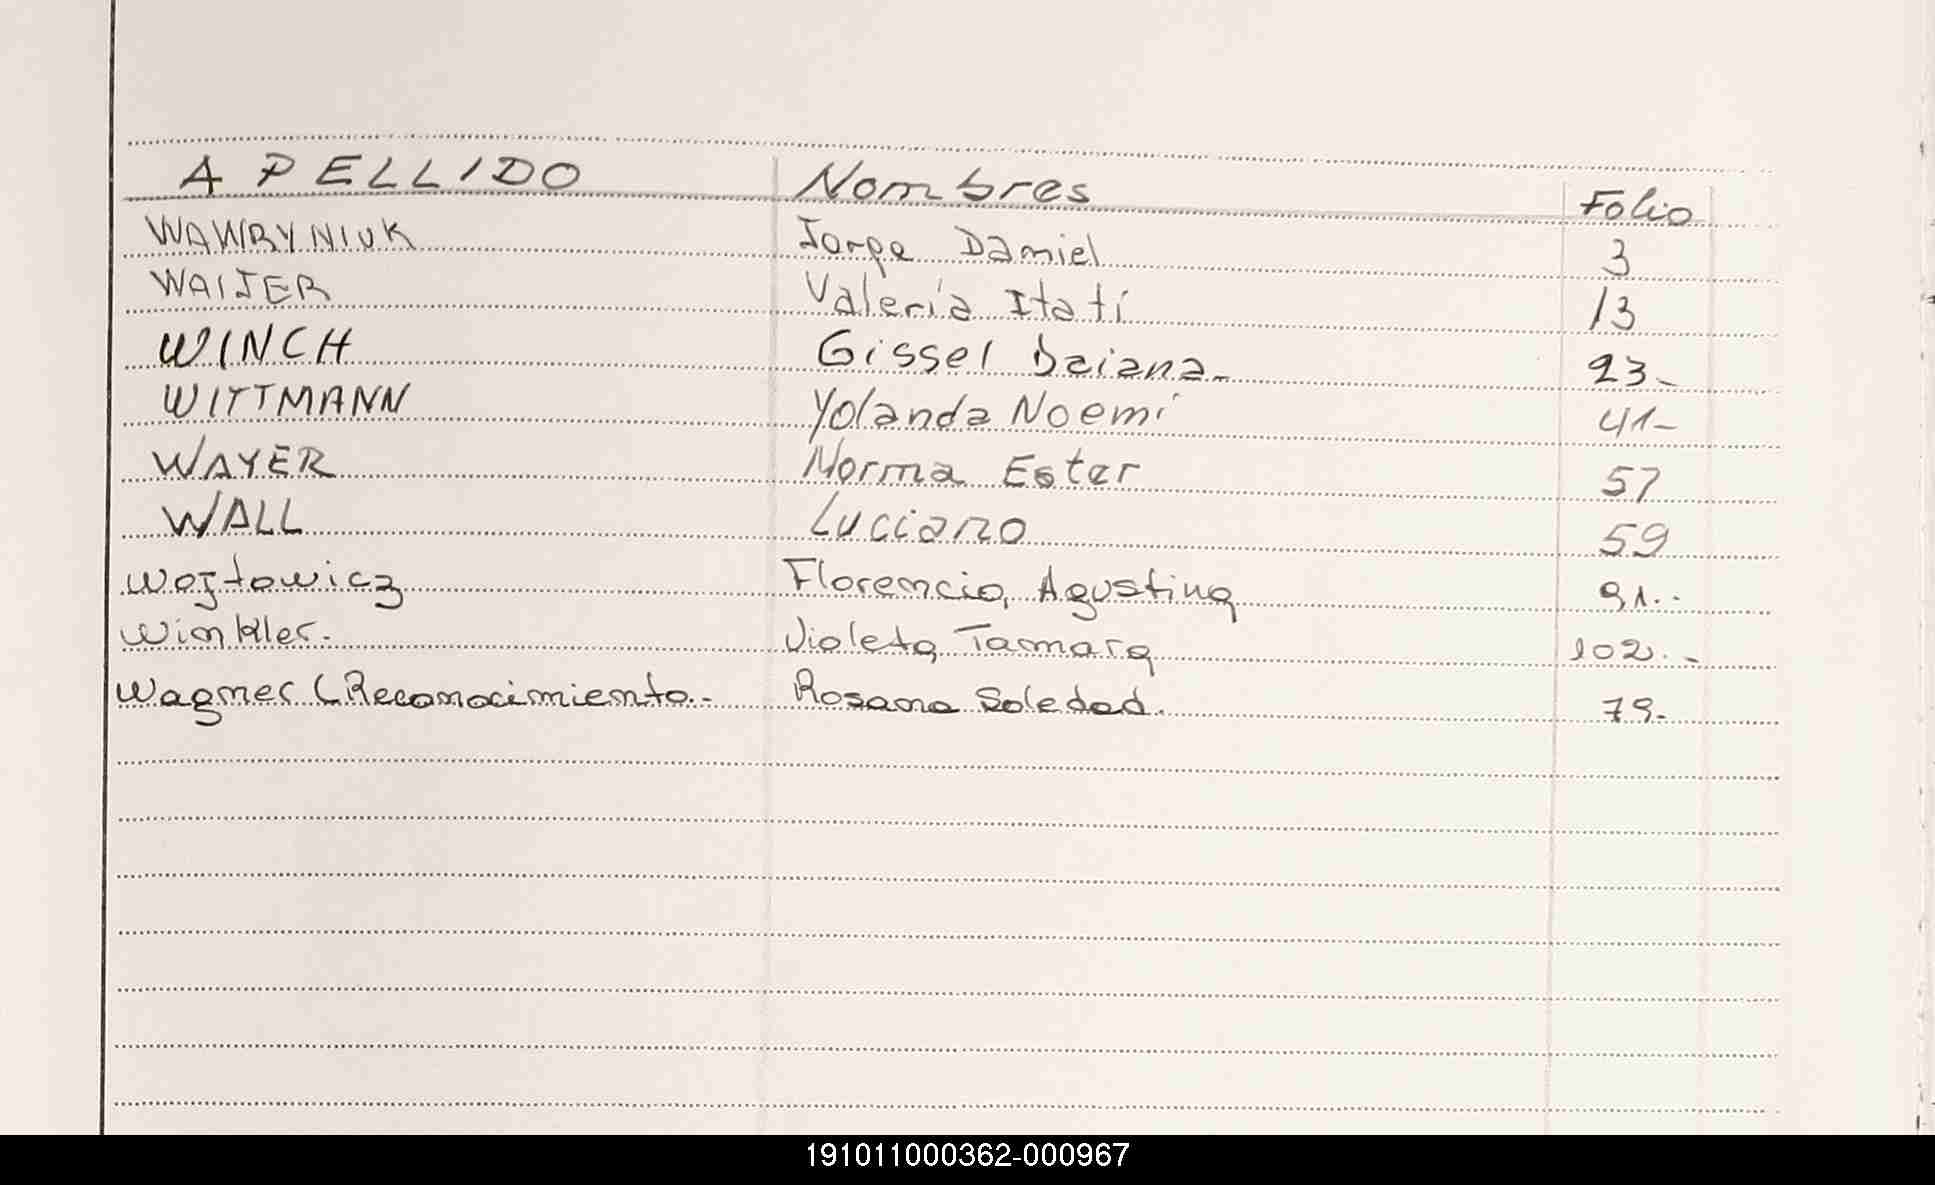 APELLIDO Nombres Folio
WAWRYNIUK Jorge Daniel 3
WAIJER Valeria Itatí 13
WINCH Gissel Daiana- 23-
WITTMANN Yolanda Noemí 41-
WAYER Norma Ester 57
WALL Luciano 59
Wojtowicz Florencia, Agustina 91.-
Winkler. Violeta, Tamara 102.-
Wagner (Reconocimiento.- Rosana Soledad. 79.
191011000362-000967